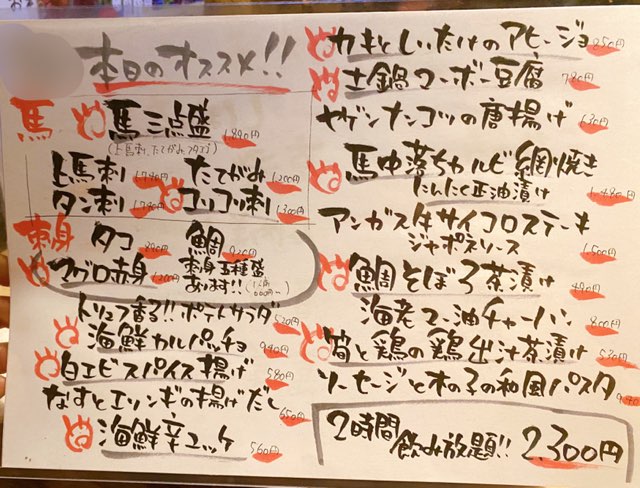 本日のオススメ!!
馬
馬三点盛 1,890円
(上馬刺、たてがみ、フタエゴ)
上馬刺 たてがみ 1,200円
タン刺 コリコリ刺 1,300円
刺身 タコ 鯛
マグロ赤身 刺身五種盛
あります!!
トリュフ香る!!ポテトサラダ 520円
海鮮カルパッチョ 940円
白エビスパイス揚げ 580円
なすとエリンギの揚げだし 650円
海鮮辛ユッケ 560円
カキとしいたけのアヒージョ 850円
土鍋マーボー豆腐 780円
ヤゲンナンコツの唐揚げ 630円
馬中落ちカルビ網焼き
にんにく正油漬け 1,480円
アンガス牛サイコロステーキ
ジャポネソース 1,500円
鯛そぼろ茶漬け 490円
海老マー油チャーハン 800円
筍と鶏の鶏出汁茶漬け 530円
ソーセージと木の子の和風パスタ
2時間
飲み放題!! 2,300円